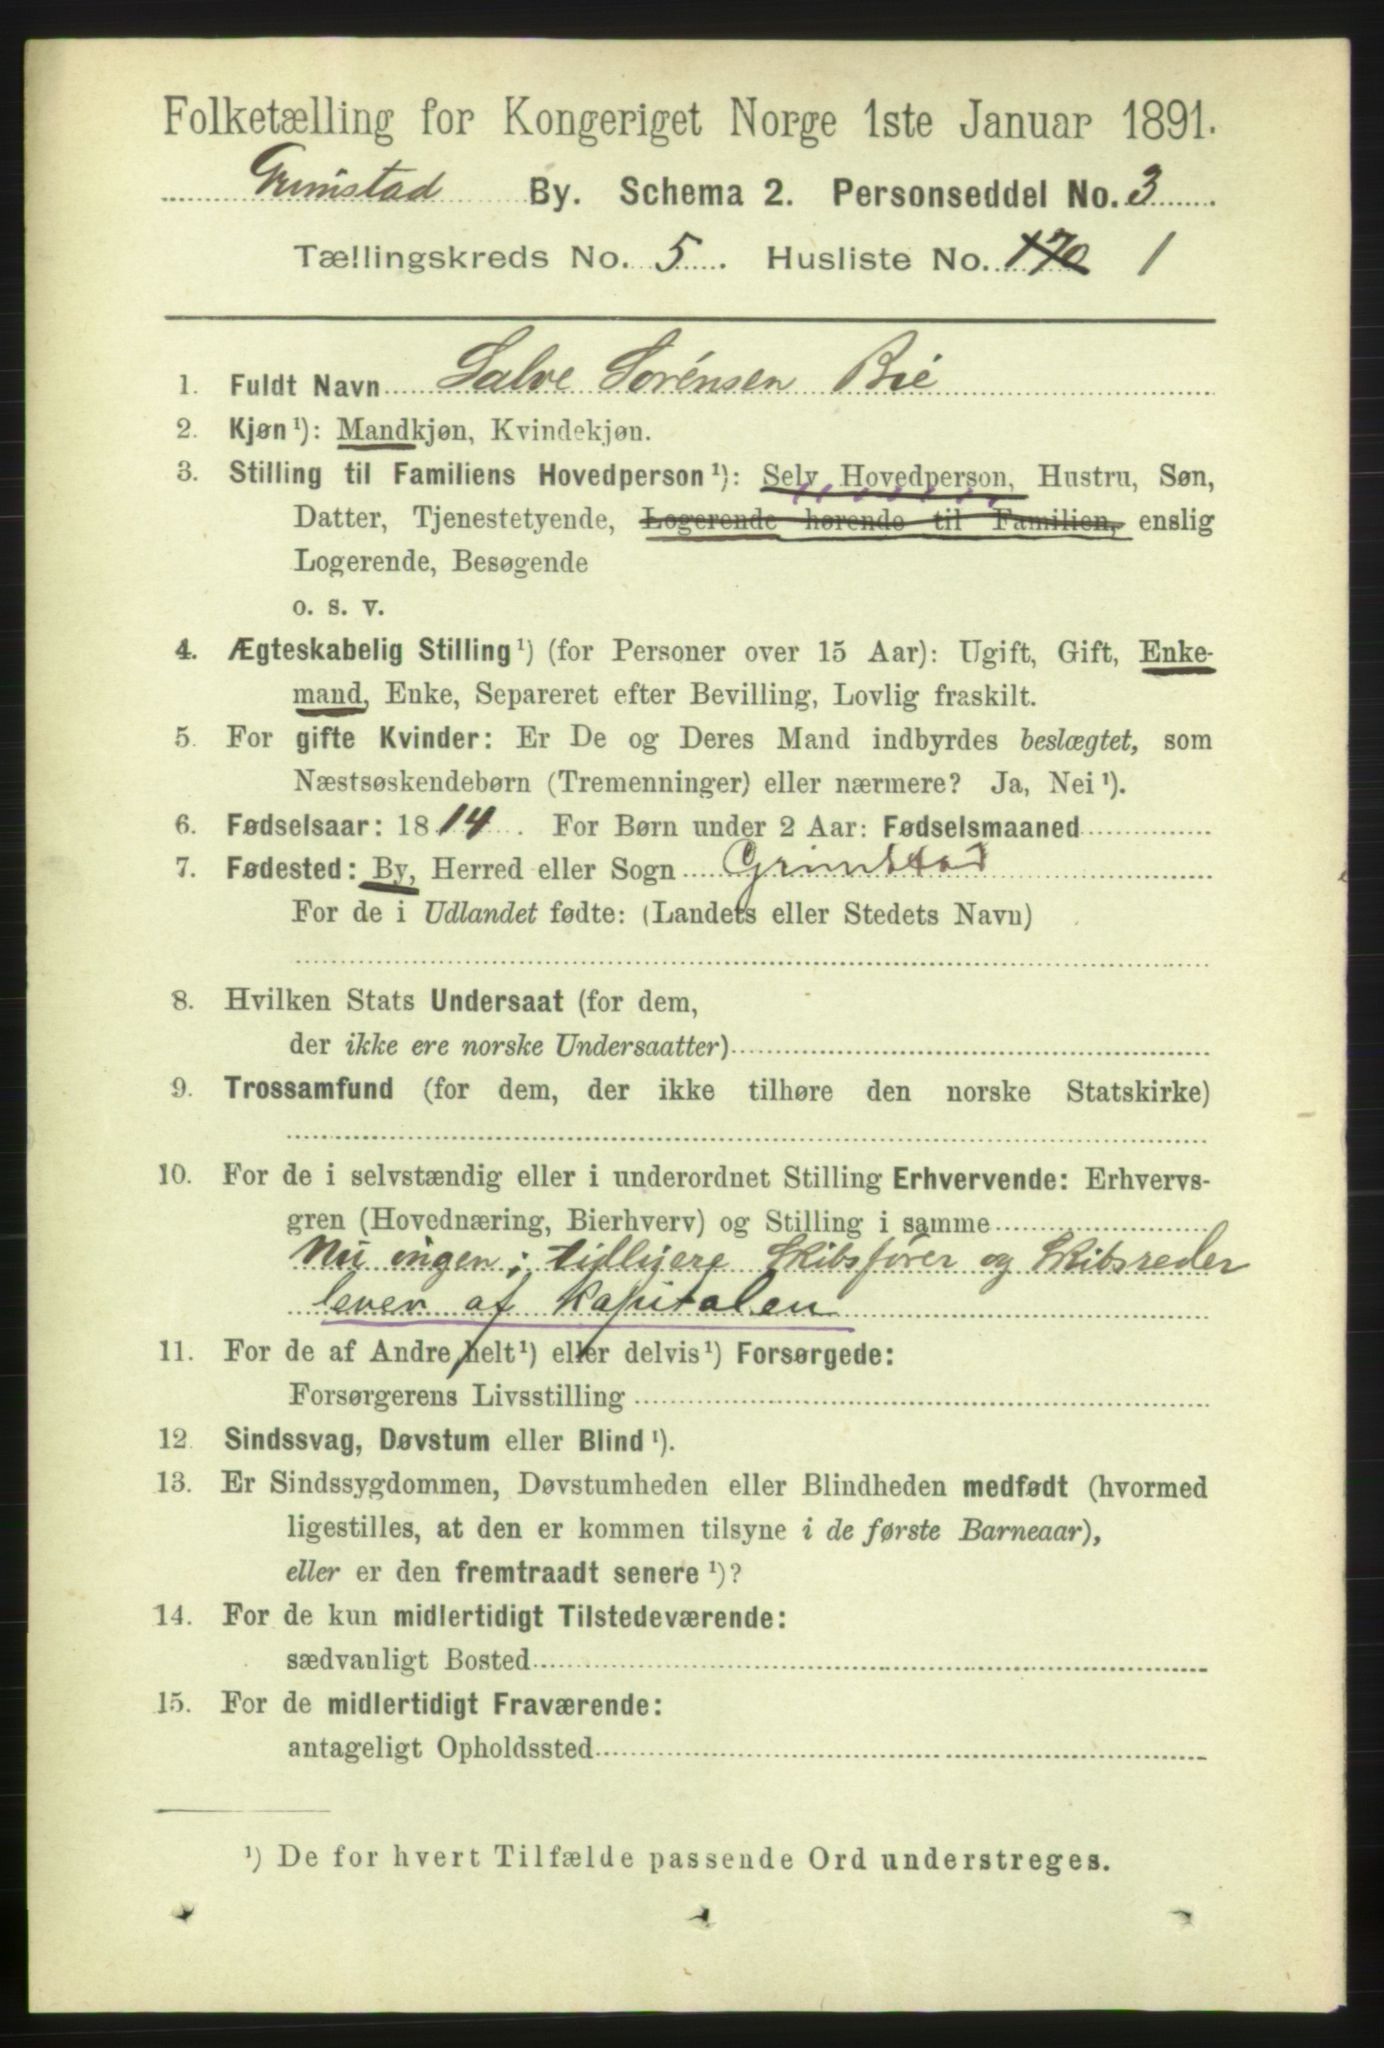 Folketælling for Kongeriget Norge 1ste Januar 1891.
Grimstad By. Schema 2. Personseddel No. 3
Tællingskreds No. 5. Husliste No. 170 1
1. Fuldt Navn Salve Sørensen Bie
2. Kjøn¹): Mandkjøn, Kvindekjøn.
3. Stilling til Familiens Hovedperson¹): Selv Hovedperson, Hustru, Søn,
Datter, Tjenestetyende, Logerende hørende til Familien, enslig
Logerende, Besøgende
o. s. v.
4. Ægteskabelig Stilling¹) (for Personer over 15 Aar): Ugift, Gift, Enke-
mand, Enke, Separeret efter Bevilling, Lovlig fraskilt.
5. For gifte Kvinder: Er De og Deres Mand indbyrdes beslægtet, som
Næstsøskendebørn (Tremenninger) eller nærmere? Ja, Nei¹).
6. Fødselsaar: 1814. For Børn under 2 Aar: Fødselsmaaned
7. Fødested: By, Herred eller Sogn Grimstad
For de i Udlandet fødte: (Landets eller Stedets Navn)
8. Hvilken Stats Undersaat (for dem,
der ikke ere norske Undersaatter)
9. Trossamfund (for dem, der ikke tilhøre den norske Statskirke)
10. For de i selvstændig eller i underordnet Stilling Erhvervende: Erhvervs-
gren (Hovednæring, Bierhverv) og Stilling i samme
Nu ingen; tidligere Skibsfører og Skibsreder
lever af Kapitalen
11. For de af Andre helt¹) eller delvis¹) Forsørgede:
Forsørgerens Livsstilling
12. Sindssvag, Døvstum eller Blind¹).
13. Er Sindssygdommen, Døvstumheden eller Blindheden medfødt (hvormed
ligestilles, at den er kommen tilsyne i de første Barneaar),
eller er den fremtraadt senere¹)?
14. For de kun midlertidigt Tilstedeværende:
sædvanligt Bosted
15. For de midlertidigt Fraværende:
antageligt Opholdssted
¹) De for hvert Tilfælde passende Ord understreges.